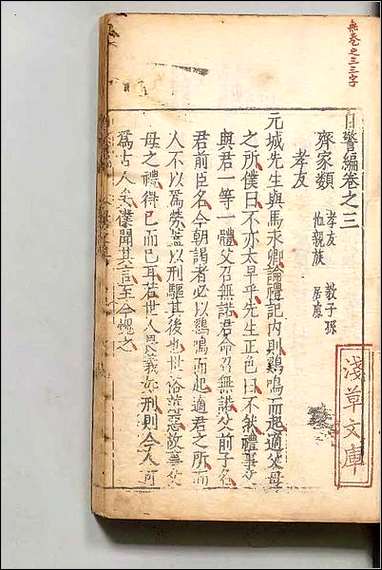 無巻之三三字
自警編卷之三
齊家類
孝友
教子孫
恤親族
居處
孝友
元城先生與馬永卿論禮記内則雞鳴而起適父母
之所僕曰不亦太早乎先生正色曰不然禮事父
與君一等一體父召無諾君命召無諾父前子名
君前臣名今朝謁者必以雞鳴而起適君之所而
人不以為勞蓋以刑驅其後也世俗薄惡故事父
母之禮得已而已耳若世人畏義如刑則今人可
為古人矣僕聞其言至今愧之
淺草文庫